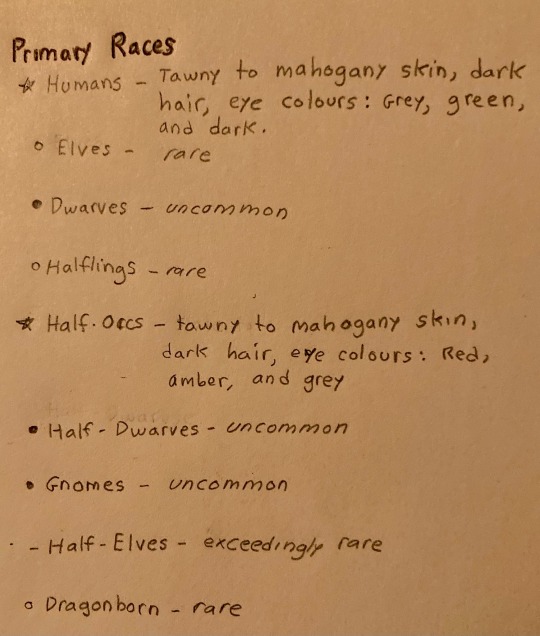 Primary Races
☆ Humans - Tawny to mahogany skin, dark
hair, eye colours: Grey, green,
and dark.
○ Elves - rare
● Dwarves - uncommon
○ Halflings - rare
☆ Half-Orcs - tawny to mahogany skin,
dark hair, eye colours: Red,
amber, and grey
● Half-Dwarves - uncommon
● Gnomes - uncommon
- Half-Elves - exceedingly rare
○ Dragonborn - rare